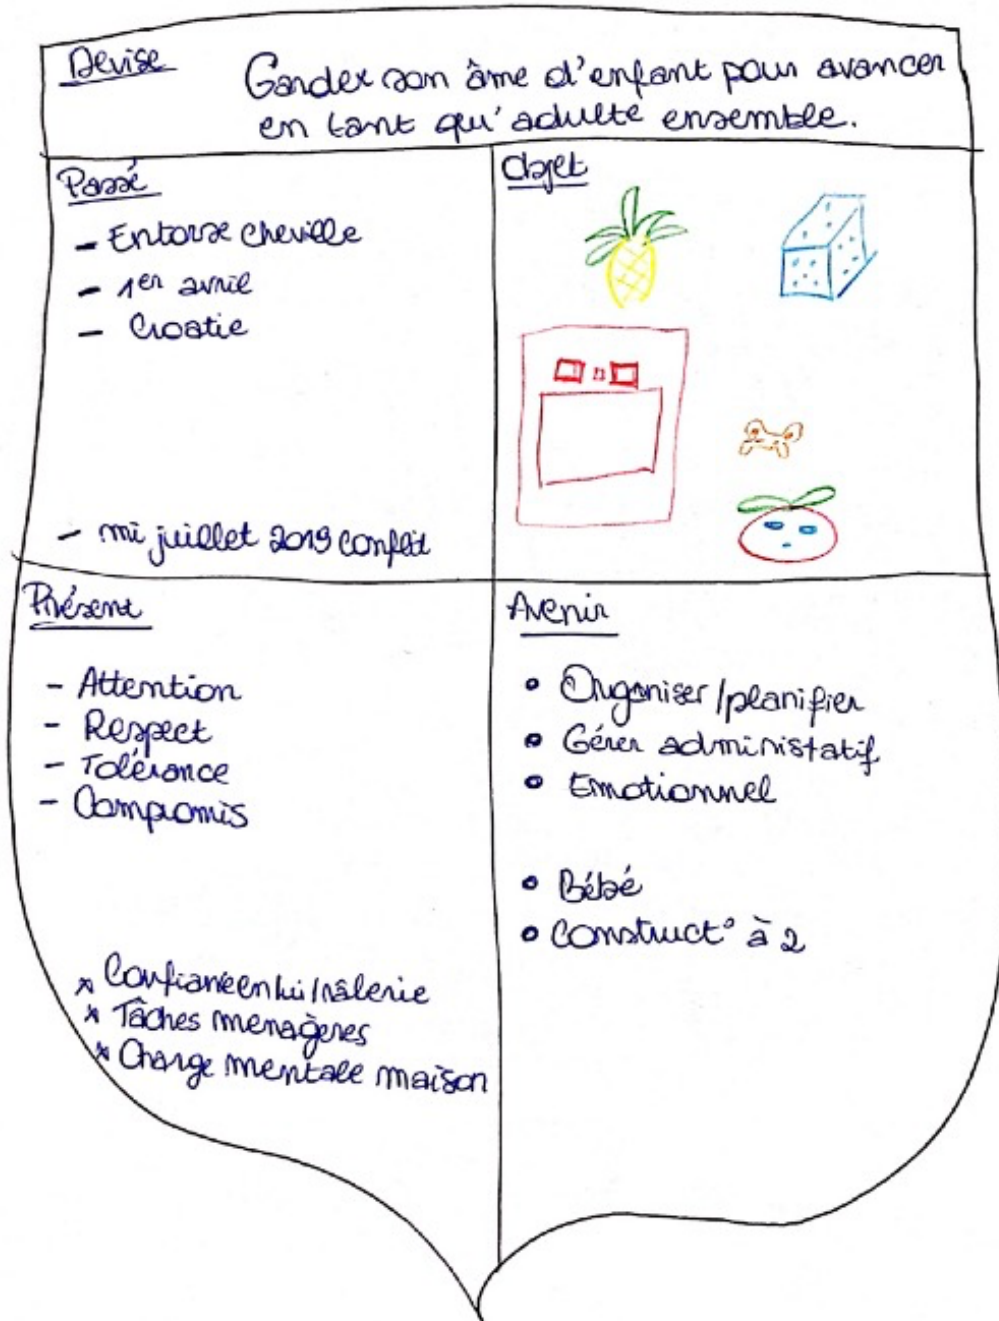 Devise
Garder son âme d'enfant pour avancer
en tant qu'adulte ensemble.
Passé
- Entorse cheville
- 1er avril
- Croatie
- mi juillet 2019 conflit
Objet
Présent
- Attention
- Respect
- Tolérance
- Compromis
* Confiance en lui / râlerie
* Tâches menagères
* Charge mentale maison
Avenir
• Organiser / planifier
• Gérer administatif
• Emotionnel
• Bébé
• Construct° à 2